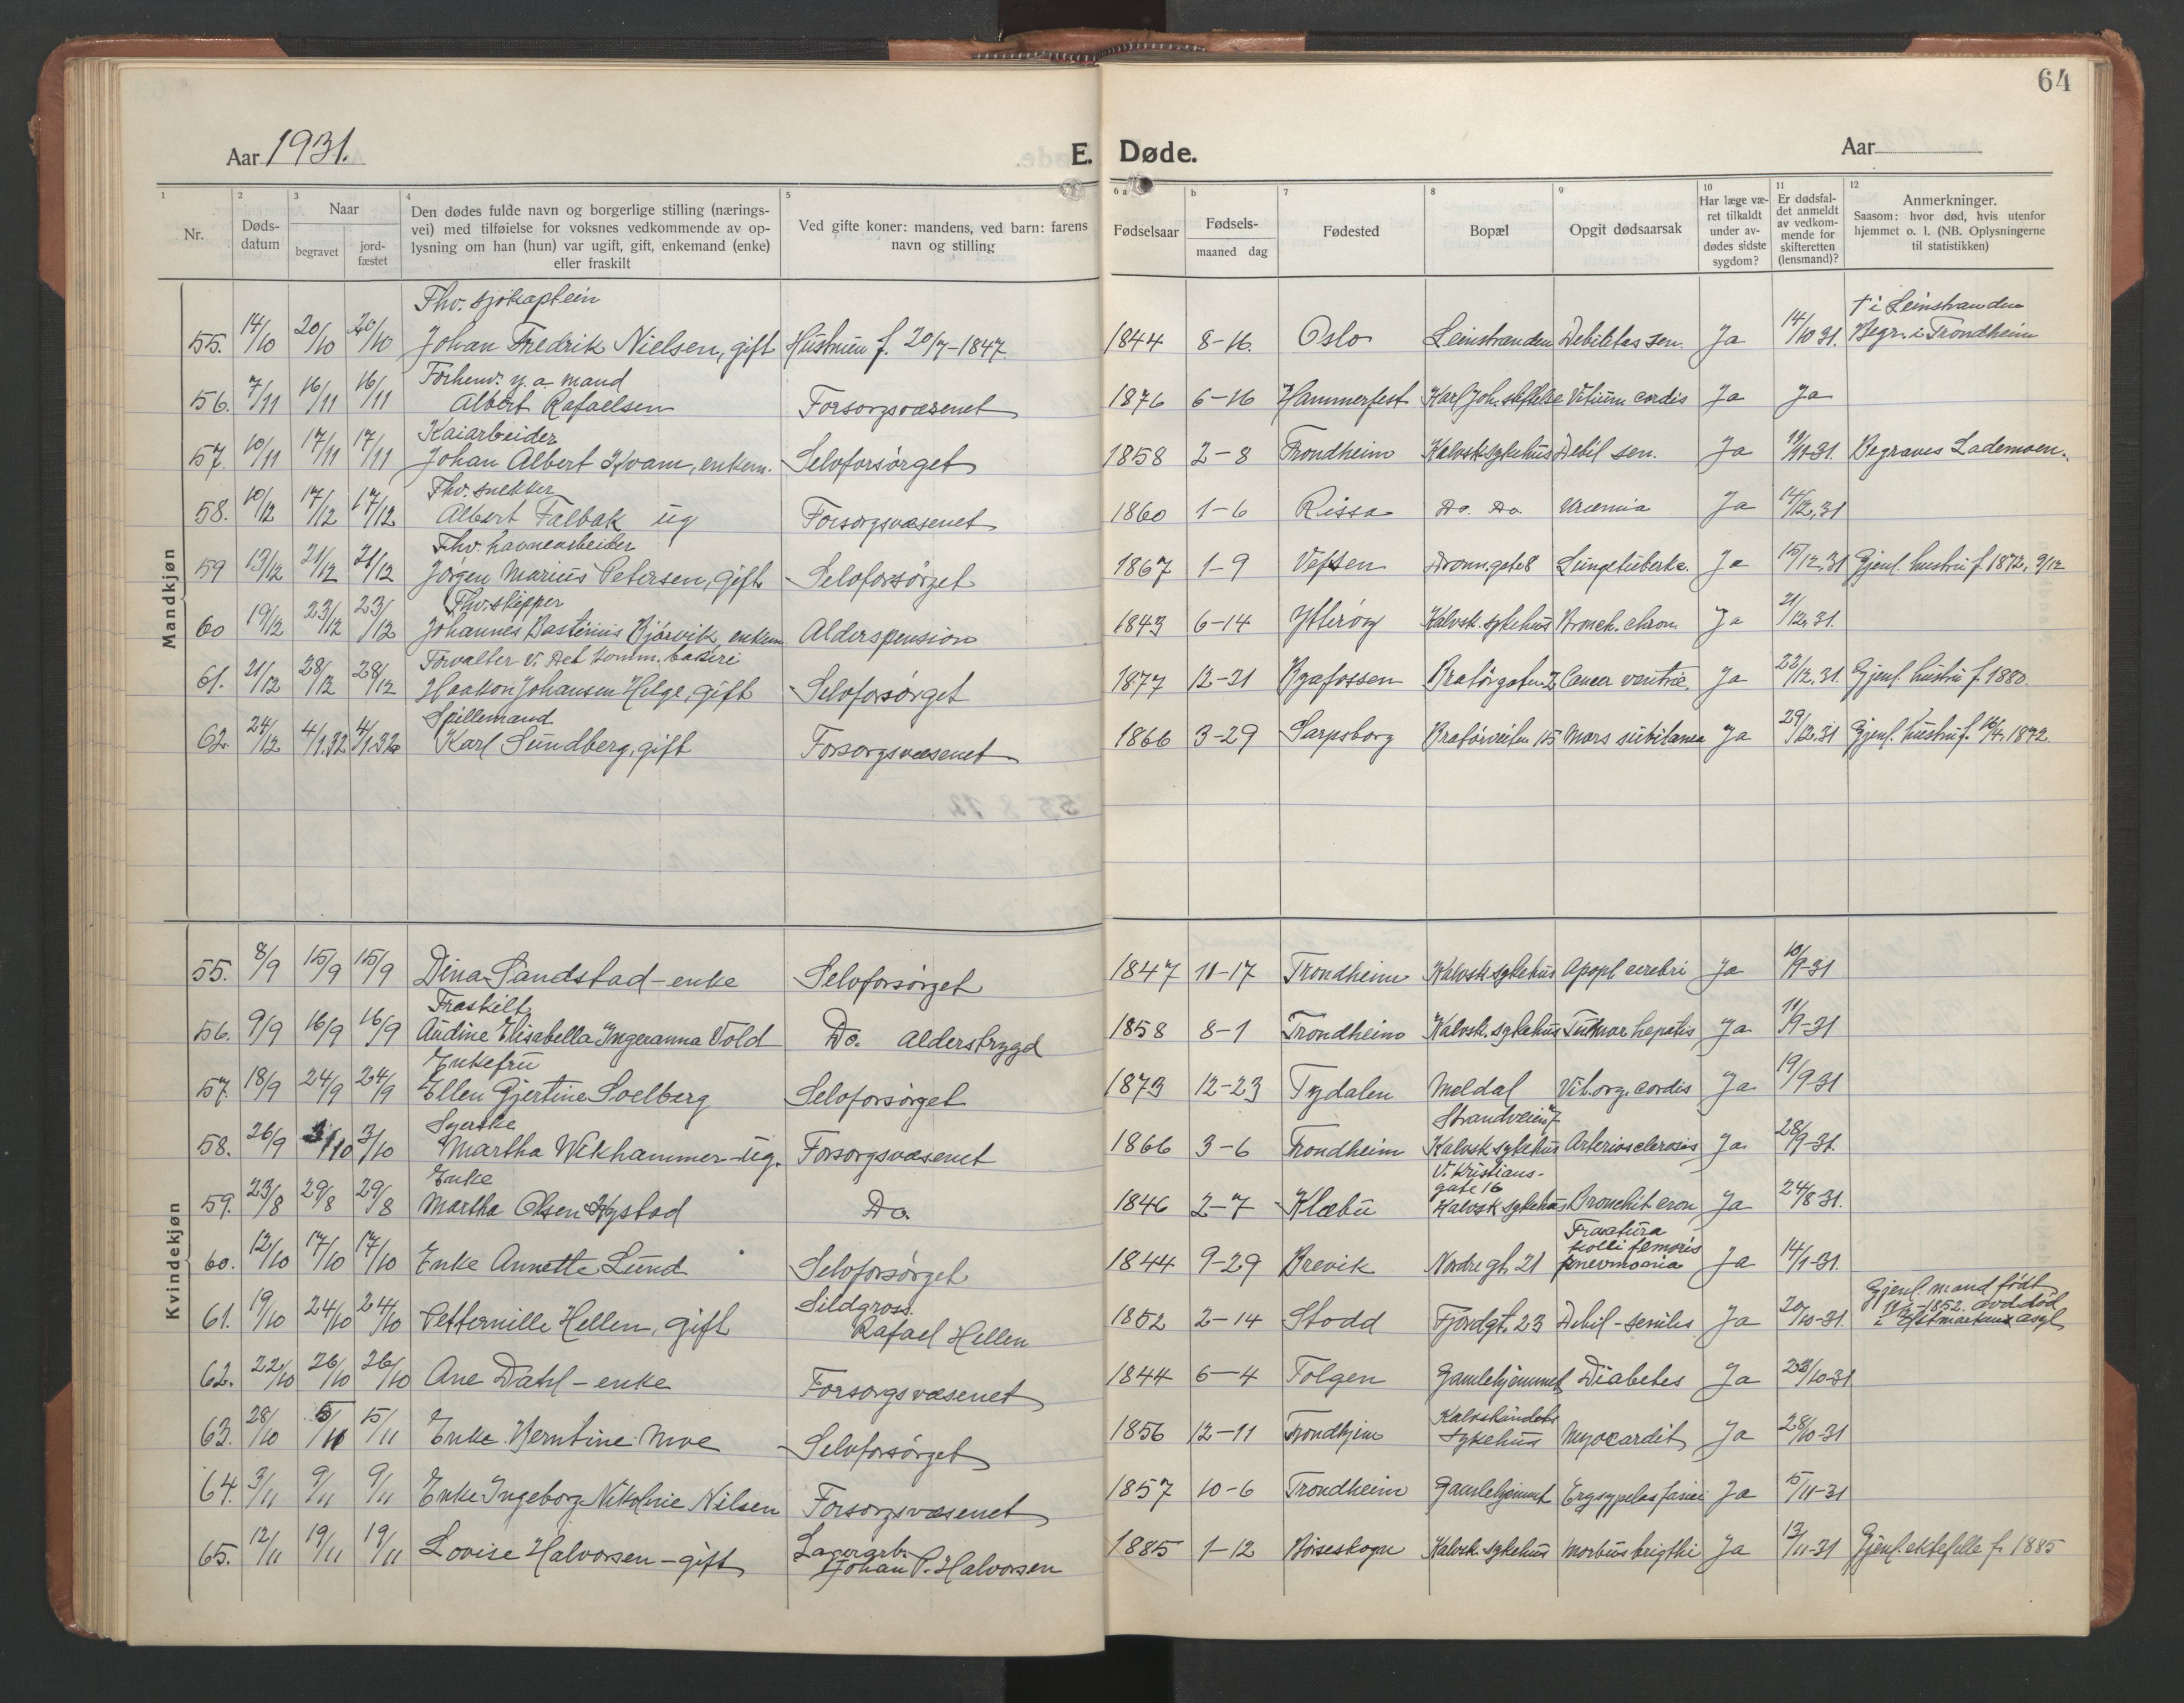 64
Aar 1931.
E. Døde.
Aar
1 2 3 4 5 6 a b 7 8 9 10 11 12
Nr.
Dødsdatum
Naar
begravet
jordfæstet
Den dødes fulde navn og borgerlige stilling (næringsvei) med tilføielse for voksnes vedkommende av oplysning om han (hun) var ugift, gift, enkemand (enke) eller fraskilt
Ved gifte koner: mandens, ved barn: farens navn og stilling
Fødselsaar
Fødsels-
maaned dag
Fødested
Bopæl
Opgit dødsaarsak
Har læge været tilkaldt under avdødes sidste sygdom?
Er dødsfaldet anmeldt av vedkommende for skifteretten (lensmand)?
Anmerkninger.
Saasom: hvor død, hvis utenfor hjemmet o. l. (NB. Oplysningerne til statistikken)
Mandkjøn
55. 14/10 20/10 20/10 Fhv. sjøkaptein Johan Fredrik Nielsen, gift Hustruen f. 20/7-1847. 1844 8-16. Oslo Leinstranden Debilitas sen. Ja 14/10 31. † i Leinstranden Begr. i Trondheim
56. 7/11 16/11 16/11 Forhenv. y. a. mand Albert Rafaelsen Forsorgsvæsenet 1876 6-16 Hammerfest Karl Joh. stiftelse Vitium cordis Ja Ja
57. 10/11 17/11 17/11 Kaiarbeider Johan Albert Kvam, enkem. Selvforsørget 1858 2-8 Trondheim Kalvsk. sykehus Debil sen. Ja Begraves Lademoen.
58. 10/12 17/12 17/12 Fhv. snekker Albert Falbak ug Forsorgsvæsenet 1860 1-6 Rissa Do. Do. Uræmia Ja 14/12, 31
59 13/12 21/12 21/12 Fhv. havnearbeider Jørgen Marius Petersen, gift Selvforsørget 1867 1-9 Vefsen Dronn.gate 8 Lungetuberk. Ja 15/12, 31 Gjenl. hustru f. 1872, 9/12
60 19/12 23/12 23/12 Fhv. skipper Johannes Bastinius Bjørvik, enkem Alderspension 1843 6-14 Ytterøy Kalvsk. sykehus Bronch. chron. Ja 21/12, 31.
61. 21/12 28/12 28/12 Forvalter v. Det komm. bakeri Haakon Johansen Helge, gift Selvforsørget 1877 12-21 Byafossen Cancer ventric. Ja 22/12, 31. Gjenl. hustru f. 1880.
62. 24/12 4/1.32 4/1.32 Spillemand Karl Sundberg, gift Forsorgsvæsenet 1866 3-29 Sarpsborg Bratørveiten 15 Mors subitanea Ja 29/12.31 Gjenl. hustru f. 16/4 1872.
Kvindekjøn
55. 8/9 15/9 15/9 Dina Sandstad - enke Selvforsørget 1847 11-17 Trondheim Kalvsk. sykehus Apopl cerebri Ja 10/9-31
56. 9/9 16/9 16/9 Fraskilt Audine Elisabella Ingeranna Vold Do. Alderstrygd 1858 8-1 Trondheim Kalvsk. sykehus Tumor hepatis Ja 11/9-31
57. 18/9 24/9 24/9 Enkefru Ellen Gjertine Soelberg Selvforsørget 1873 12-23 Tydalen Meldal Vit. org. cordis Ja 19/9-31
58. 26/9 3/10 3/10 Syerske Martha Wikhammer - ug. Forsorgsvæsenet 1866 3-6 Trondheim Strandveien 7 Kalvsk sykehus Arteriosclerosis Ja 28/9-31.
59. 23/8 29/8 29/8 Enke Martha Olsen Hystad Do. 1846 2-7 Klæbu V. Kristiansgate 16 Kalvsk sykehus Bronchit cron Ja 24/8-31.
60. 12/10 17/10 17/10 Enke Annette Lund Selvforsørget 1844 9-29 Brevik Nordregt. 21 Fractura colli femoris pneumonia Ja 14/1-31.
61. 19/10 24/10 24/10 Petternille Hellen, gift Sildgross. Rafael Hellen 1852 2-14 Stodd Fjordgt. 23 Debil - senilis Ja 20/10-31. Gjenl. mand født -1852. død i asyl
62. 22/10 26/10 26/10 Ane Dahl - enke Forsorgsvæsenet 1844 6-4 Tolgen Gamlehjemmet Diabetes Ja 23/10-31
63. 28/10 5/11 5/11 Enke Berntine Moe Selvforsørget 1856 12-11 Trondhjem Kalvskindets sykehus Myocardit Ja 28/10-31
64. 3/11 9/11 9/11 Enke Ingeborg Nikoline Nilsen Forsorgsvæsenet 1857 10-6 Trondheim Gamlehjemmet Erysypelas faciei Ja 5/11-31
65. 12/11 19/11 19/11 Lovise Halvorsen - gift Lagerarb. Johan P. Halvorsen 1885 1-12 Børseskogn Kalvsk. sykehus Morbus brigthi Ja 13/11-31 Gjenl. ektefelle f. 1885